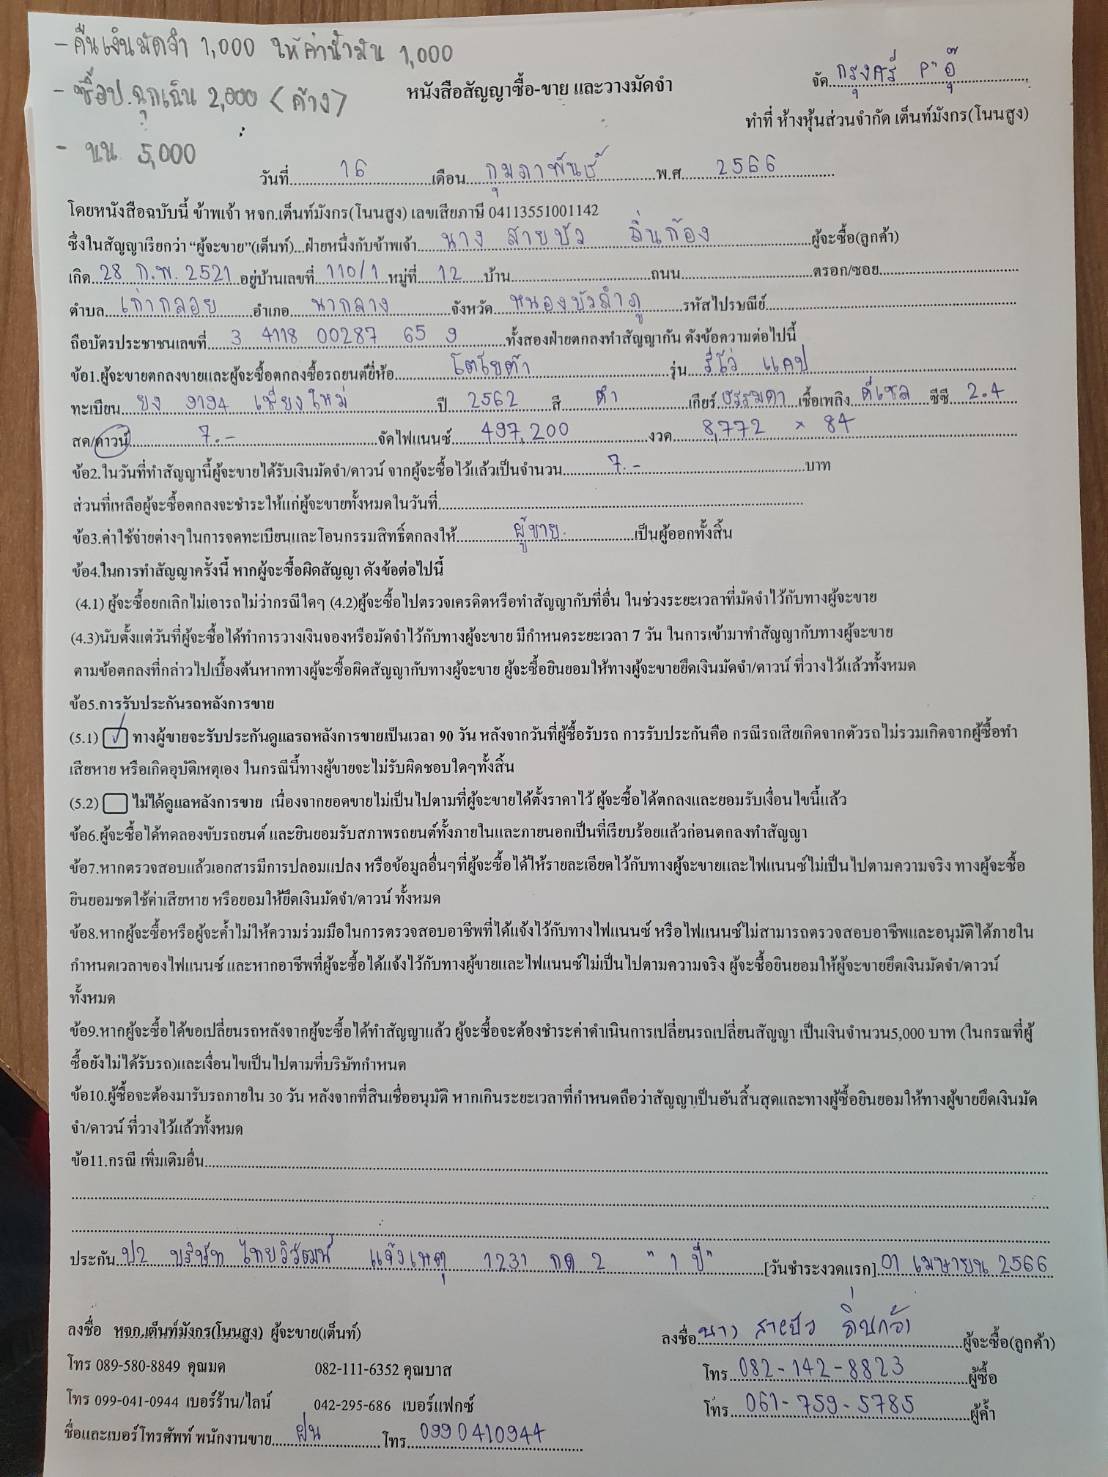 - คืนเงินมัดจำ 1,000 ให้ค่าน้ำมัน 1,000
- ซื้อป.ฉุกเฉิน 2,000 <ค้าง>
- นน 5,000
จัด กรุงศรี P'อุ๊
หนังสือสัญญาซื้อ-ขาย และวางมัดจำ
ทำที่ ห้างหุ้นส่วนจำกัด เต็นท์มังกร(โนนสูง)
วันที่ 16 เดือน กุมภาพันธ์ พ.ศ. 2566
โดยหนังสือฉบับนี้ ข้าพเจ้า หจก.เต็นท์มังกร(โนนสูง) เลขเสียภาษี 04113551001142
ซึ่งในสัญญาเรียกว่า "ผู้จะขาย"(เต็นท์)...ฝ่ายหนึ่งกับข้าพเจ้า นาง สายบัว ลิ่นก้อง ผู้จะซื้อ(ลูกค้า)
เกิด 28 ก.พ. 2521 อยู่บ้านเลขที่ 110/1 หมู่ที่ 12 บ้าน ถนน ตรอก/ซอย
ตำบล เก่ากลอย อำเภอ นากลาง จังหวัด หนองบัวลำภู รหัสไปรษณีย์
ถือบัตรประชาชนเลขที่ 3 4118 00287 65 9 ทั้งสองฝ่ายตกลงทำสัญญากัน ดังข้อความต่อไปนี้
ข้อ1.ผู้จะขายตกลงขายและผู้จะซื้อตกลงซื้อรถยนต์ยี่ห้อ โตโยต้า รุ่น รีโว่ แคป
ทะเบียน ยง 9194 เชียงใหม่ ปี 2562 สี ดำ เกียร์ ธรรมดา เชื้อเพลิง ดีเซล ซีซี 2.4
สด/ดาวน์ 7.- จัดไฟแนนซ์ 497,200 งวด 8,772 × 84
ข้อ2.ในวันที่ทำสัญญานี้ผู้จะขายได้รับเงินมัดจำ/ดาวน์ จากผู้จะซื้อไว้แล้วเป็นจำนวน 7.- บาท
ส่วนที่เหลือผู้จะซื้อตกลงจะชำระให้แก่ผู้จะขายทั้งหมดในวันที่
ข้อ3.ค่าใช้จ่ายต่างๆในการจดทะเบียนและโอนกรรมสิทธิ์ตกลงให้ ผู้ขาย. เป็นผู้ออกทั้งสิ้น
ข้อ4.ในการทำสัญญาครั้งนี้ หากผู้จะซื้อผิดสัญญา ดังข้อต่อไปนี้
(4.1) ผู้จะซื้อยกเลิกไม่เอารถไม่ว่ากรณีใดๆ (4.2)ผู้จะซื้อไปตรวจเครดิตหรือทำสัญญากับที่อื่น ในช่วงระยะเวลาที่มัดจำไว้กับทางผู้จะขาย
(4.3)นับตั้งแต่วันที่ผู้จะซื้อได้ทำการวางเงินจองหรือมัดจำไว้กับทางผู้จะขาย มีกำหนดระยะเวลา 7 วัน ในการเข้ามาทำสัญญากับทางผู้จะขาย
ตามข้อตกลงที่กล่าวไปเบื้องต้นหากทางผู้จะซื้อผิดสัญญากับทางผู้จะขาย ผู้จะซื้อยินยอมให้ทางผู้จะขายยึดเงินมัดจำ/ดาวน์ ที่วางไว้แล้วทั้งหมด
ข้อ5.การรับประกันรถหลังการขาย
(5.1) ✓ ทางผู้ขายจะรับประกันดูแลรถหลังการขายเป็นเวลา 90 วัน หลังจากวันที่ผู้ซื้อรับรถ การรับประกันคือ กรณีรถเสียเกิดจากตัวรถไม่รวมเกิดจากผู้ซื้อทำ
เสียหาย หรือเกิดอุบัติเหตุเอง ในกรณีนี้ทางผู้ขายจะไม่รับผิดชอบใดๆทั้งสิ้น
(5.2) ไม่ได้ดูแลหลังการขาย เนื่องจากยอดขายไม่เป็นไปตามที่ผู้จะขายได้ตั้งราคาไว้ ผู้จะซื้อได้ตกลงและยอมรับเงื่อนไขนี้แล้ว
ข้อ6.ผู้จะซื้อได้ทดลองขับรถยนต์ และยินยอมรับสภาพรถยนต์ทั้งภายในและภายนอกเป็นที่เรียบร้อยแล้วก่อนตกลงทำสัญญา
ข้อ7.หากตรวจสอบแล้วเอกสารมีการปลอมแปลง หรือข้อมูลอื่นๆที่ผู้จะซื้อได้ให้รายละเอียดไว้กับทางผู้จะขายและไฟแนนซ์ไม่เป็นไปตามความจริง ทางผู้จะซื้อ
ยินยอมชดใช้ค่าเสียหาย หรือยอมให้ยึดเงินมัดจำ/ดาวน์ ทั้งหมด
ข้อ8.หากผู้จะซื้อหรือผู้จะค้ำไม่ให้ความร่วมมือในการตรวจสอบอาชีพที่ได้แจ้งไว้กับทางไฟแนนซ์ หรือไฟแนนซ์ไม่สามารถตรวจสอบอาชีพและอนุมัติได้ภายใน
กำหนดเวลาของไฟแนนซ์ และหากอาชีพที่ผู้จะซื้อได้แจ้งไว้กับทางผู้ขายและไฟแนนซ์ไม่เป็นไปตามความจริง ผู้จะซื้อยินยอมให้ผู้จะขายยึดเงินมัดจำ/ดาวน์
ทั้งหมด
ข้อ9.หากผู้จะซื้อได้ขอเปลี่ยนรถหลังจากผู้จะซื้อได้ทำสัญญาแล้ว ผู้จะซื้อจะต้องชำระค่าดำเนินการเปลี่ยนรถเปลี่ยนสัญญา เป็นเงินจำนวน5,000 บาท (ในกรณที่ผู้
ซื้อยังไม่ได้รับรถ)และเงื่อนไขเป็นไปตามที่บริษัทกำหนด
ข้อ10.ผู้ซื้อจะต้องมารับรถภายใน 30 วัน หลังจากที่สินเชื่ออนุมัติ หากเกินระยะเวลาที่กำหนดถือว่าสัญญาเป็นอันสิ้นสุดและทางผู้ซื้อยินยอมให้ทางผู้ขายยึดเงินมัด
จำ/ดาวน์ ที่วางไว้แล้วทั้งหมด
ข้อ11.กรณี เพิ่มเติมอื่น
ประกัน ป2 บริษัท ไทยวิวัฒน์ แจ้งเหตุ 1231 กด 2 "1 ปี" [วันชำระงวดแรก] 01 เมษายน 2566
ลงชื่อ หจก.เต็นท์มังกร(โนนสูง) ผู้จะขาย(เต็นท์)
ลงชื่อ นาง สายบัว ลิ่นก้อง ผู้จะซื้อ(ลูกค้า)
โทร 089-580-8849 คุณมด 082-111-6352 คุณบาส
โทร 082-142-8823 ผู้ซื้อ
โทร 099-041-0944 เบอร์ร้าน/ไลน์ 042-295-686 เบอร์แฟกซ์
โทร 061-759-5785 ผู้ค้ำ
ชื่อและเบอร์โทรศัพท์ พนักงานขาย ฝน โทร 0990410944